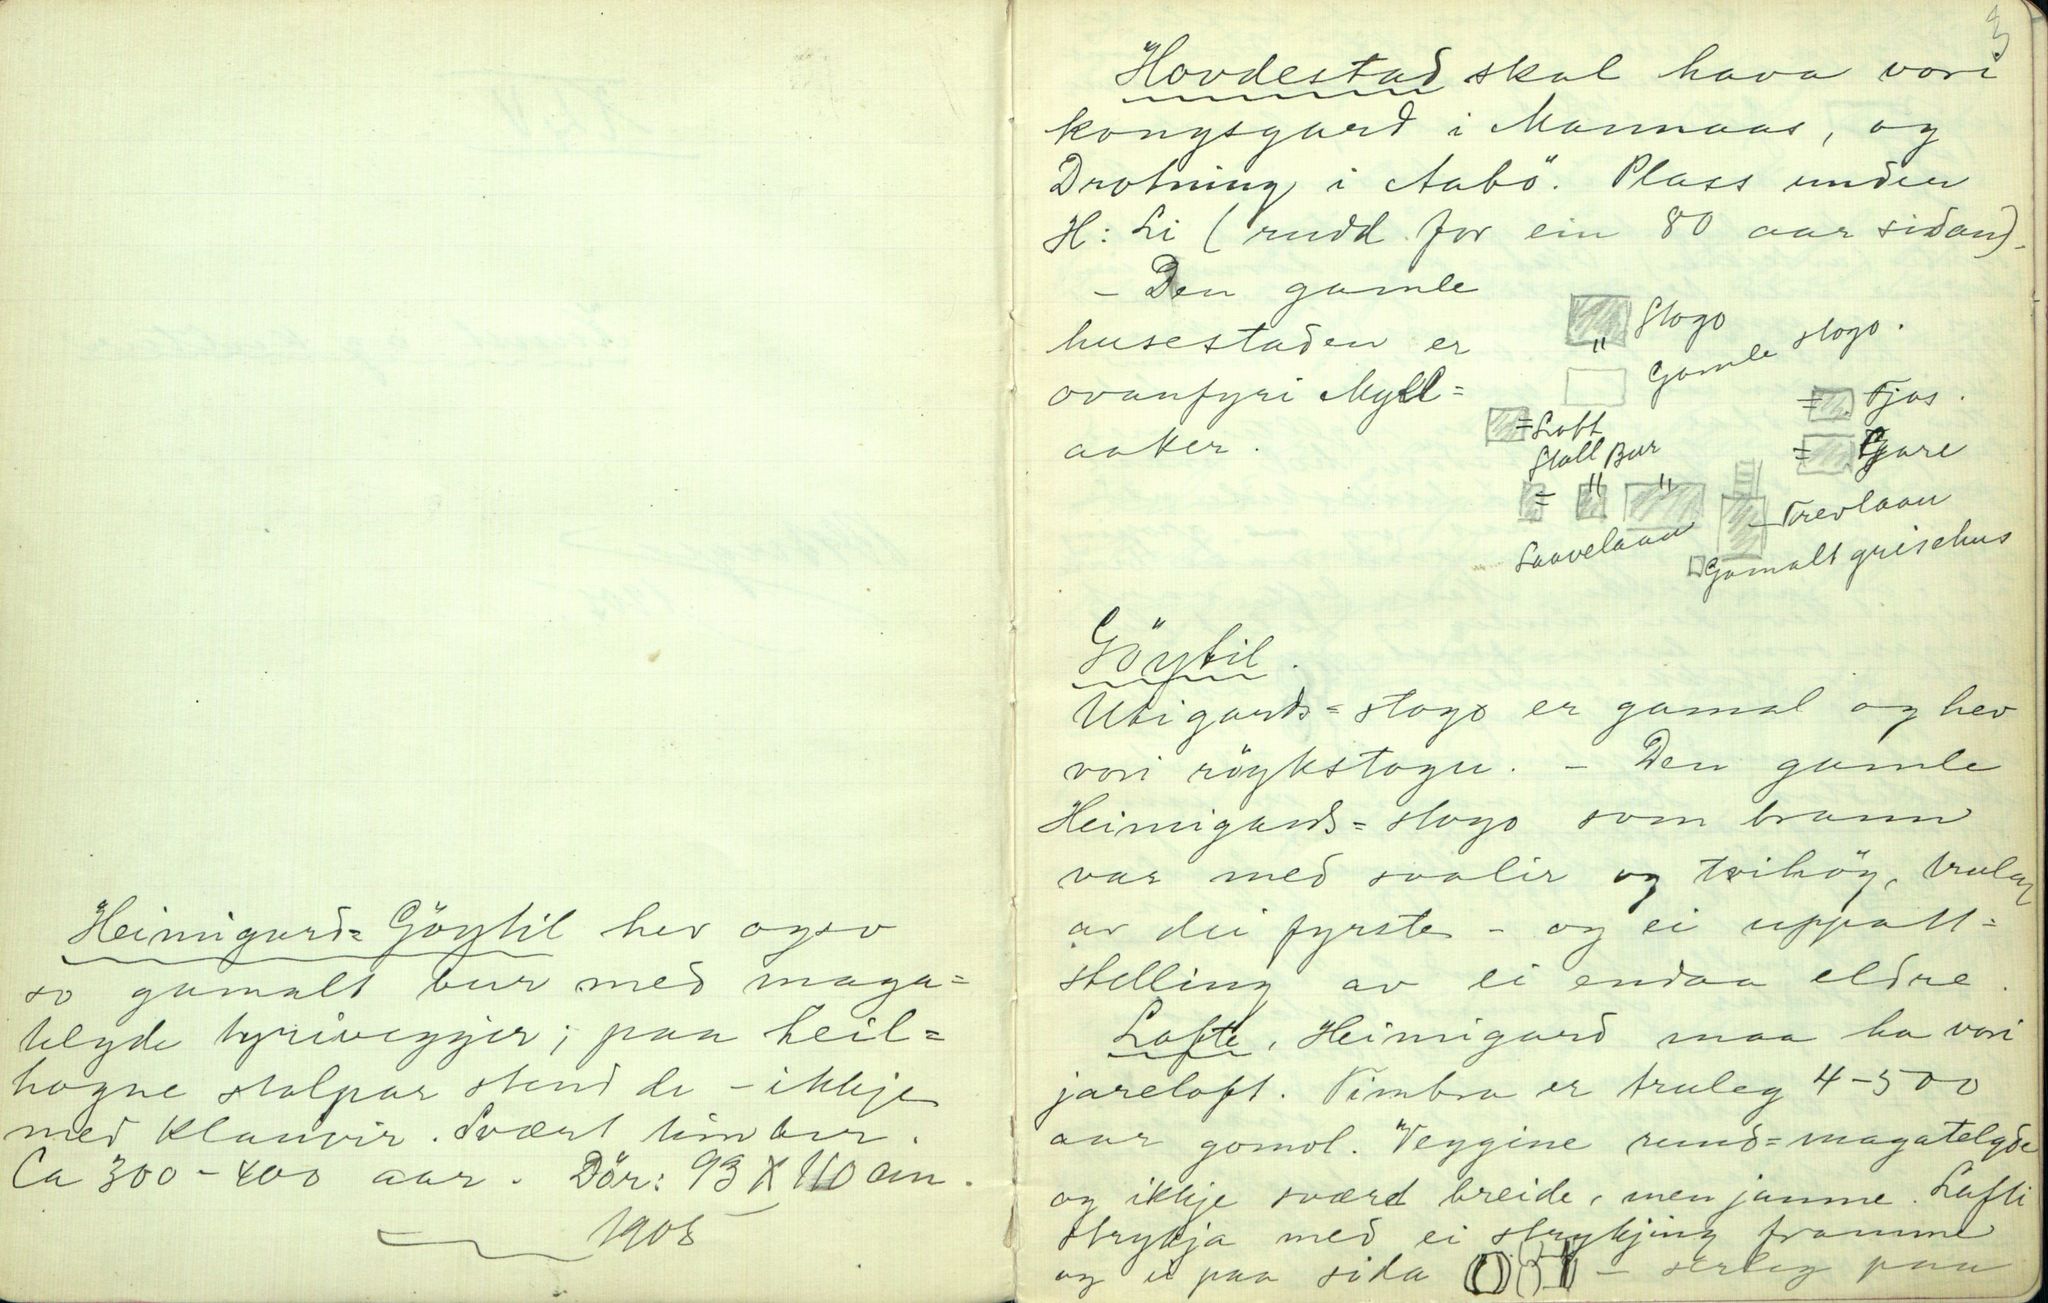 Heimigard=Göytil hev ogso
so gamalt bur med maga=
telgde tyriveggjer; paa heil=
hogne stolpar stend de - ikkje
med klauvir. Svært timber.
Ca 300-400 aar. Dör: 93 X 110 cm.
1908
3
Hovdestad skal hava vori
kongsgard i Mannaas, og
Drotning i Aabö. Plass under
H: Li (rudd for ein 80 aar sidan).
- Den gamle
husestaden er
ovanfyri Myll=
aaker.
Stogo
Gamle stogo.
Fjos.
=Loft
Stall Bur
Gare
Trevlaau
Laavelaau
Gamalt grisehus
Göytil.
Utigards=stogo er gamal og hev
vori röykstogu. - Den gamle
Heimigards=stogo som brann
var med svalir og tvihög, truleg
av dei fyrste - og ei uppatt=
stelling av ei endaa eldre.
Lofte, Heimigard maa ha vori
jareloft. Timbra er truleg 4-500
aar gomol. Veggine rund=magatelgde
og ikkje sværd breide, men jamne. Lafti
strykja med ei strykjing framme
og ei paa sida - serleg paa